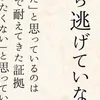 ら逃げていな
」と思っているのは
で耐えてきた証拠
たくない」と思ってい